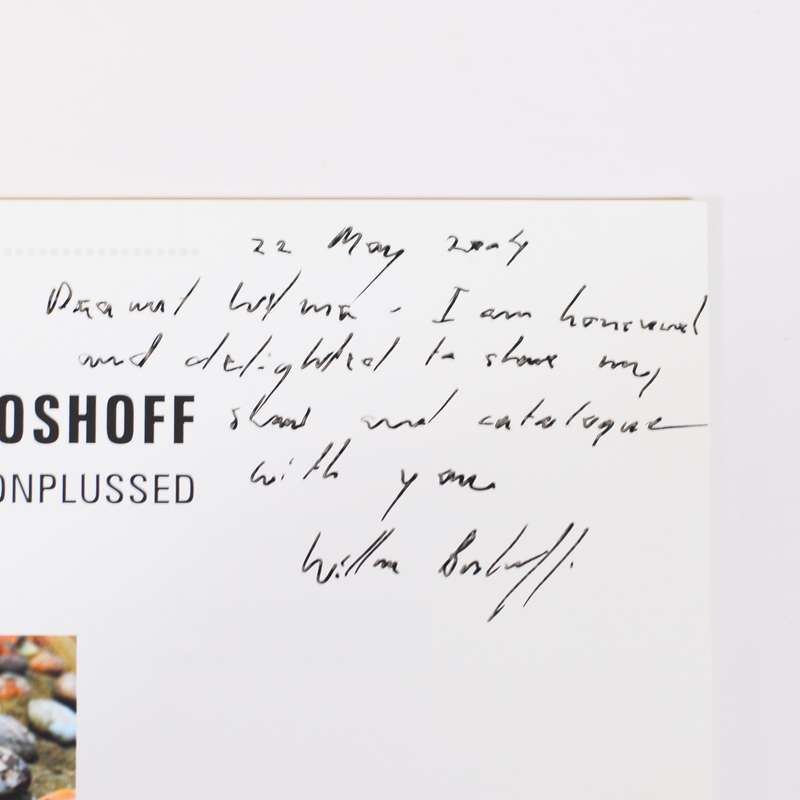 22 May 2004
Wilma - I am honoured
and delighted to share my
OSHOFF
show and catalogue
ONPLUSSED
with you
Willem Boshoff.